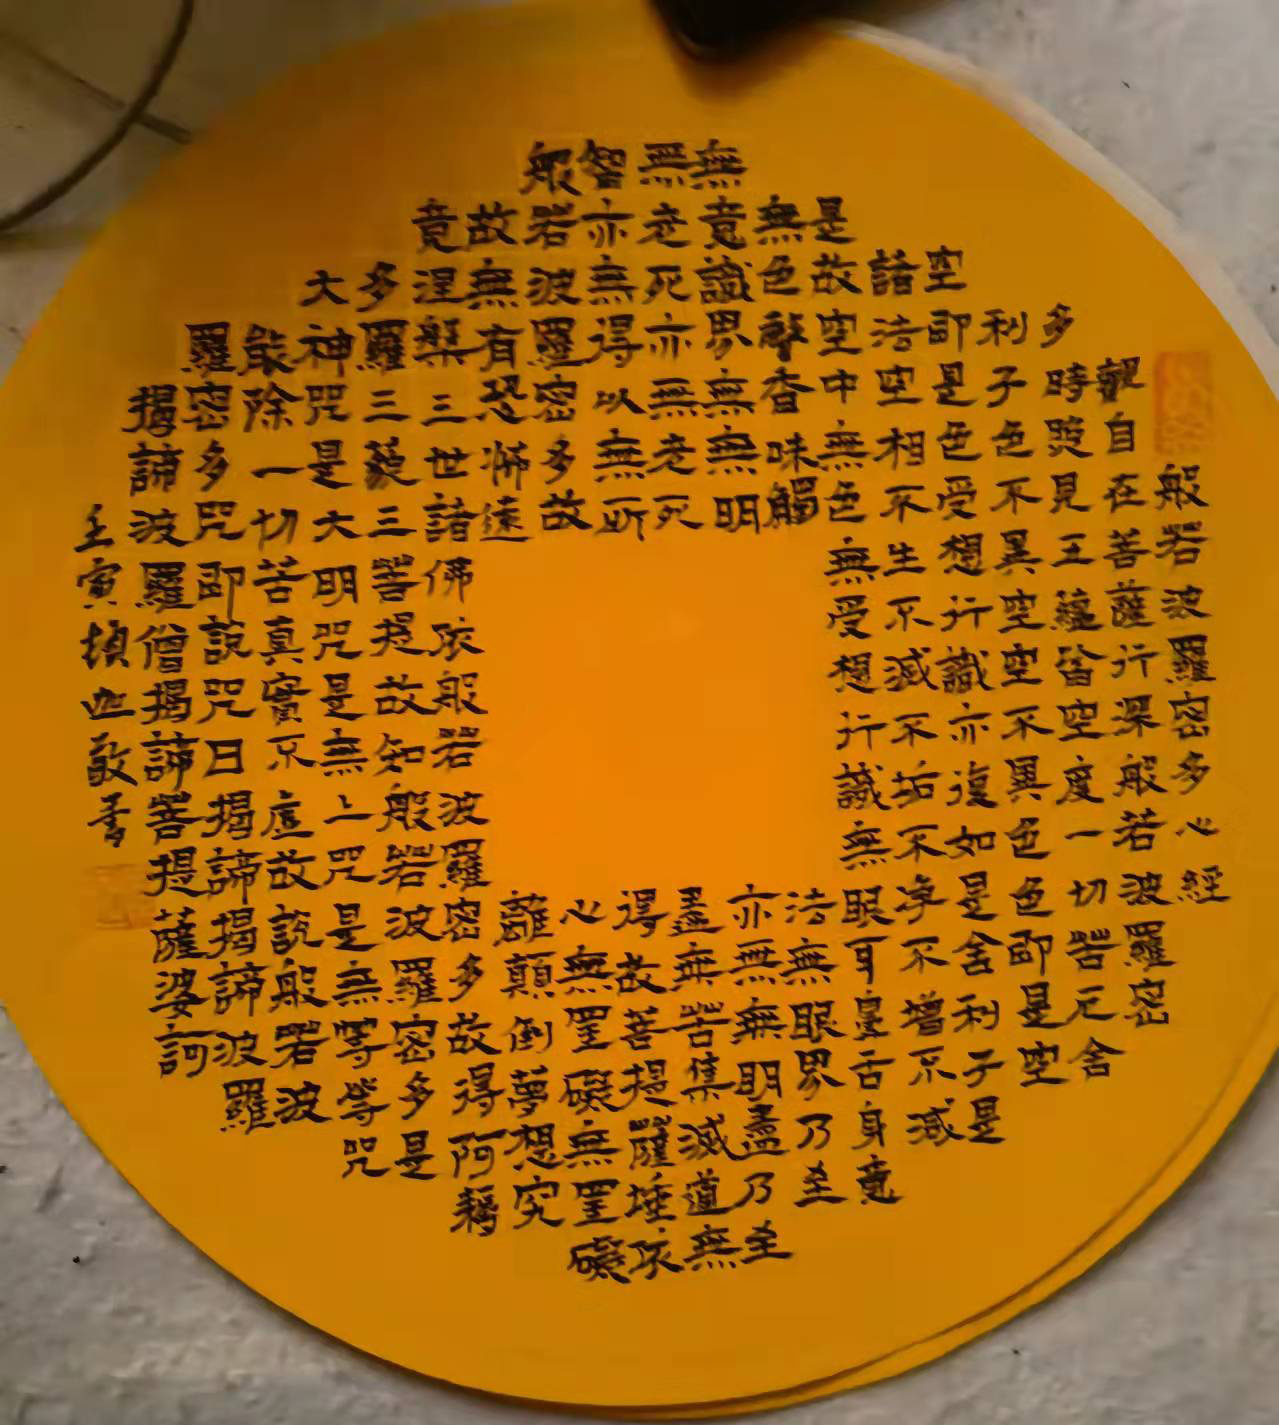 般若波羅密多心經
觀自在菩薩行深般若波羅密
多時照見五蘊皆空度一切苦厄舍
利子色不異空空不異色色即是空
空即是色受想行識亦復如是舍利子是
諸法空相不生不滅不垢不淨不增不減
是故空中無色無受想行識無眼耳鼻舌身意
無色聲香味觸法無眼界乃至
無意識界無無明亦無無明盡乃至
無老死亦無老死盡無苦集滅道無
智亦無得以無所得故菩提薩埵依
般若波羅密多故心無罣礙無罣礙
故無有恐怖遠離顛倒夢想究
竟涅槃三世諸佛依般若波羅密多故得阿耨
多羅三藐三菩提故知般若波羅密多是
大神咒是大明咒是無上咒是無等等咒
能除一切苦真實不虛故說般若波
羅密多咒即說咒曰揭諦揭諦波羅
揭諦波羅僧揭諦菩提薩婆訶
壬寅楨迦敬書